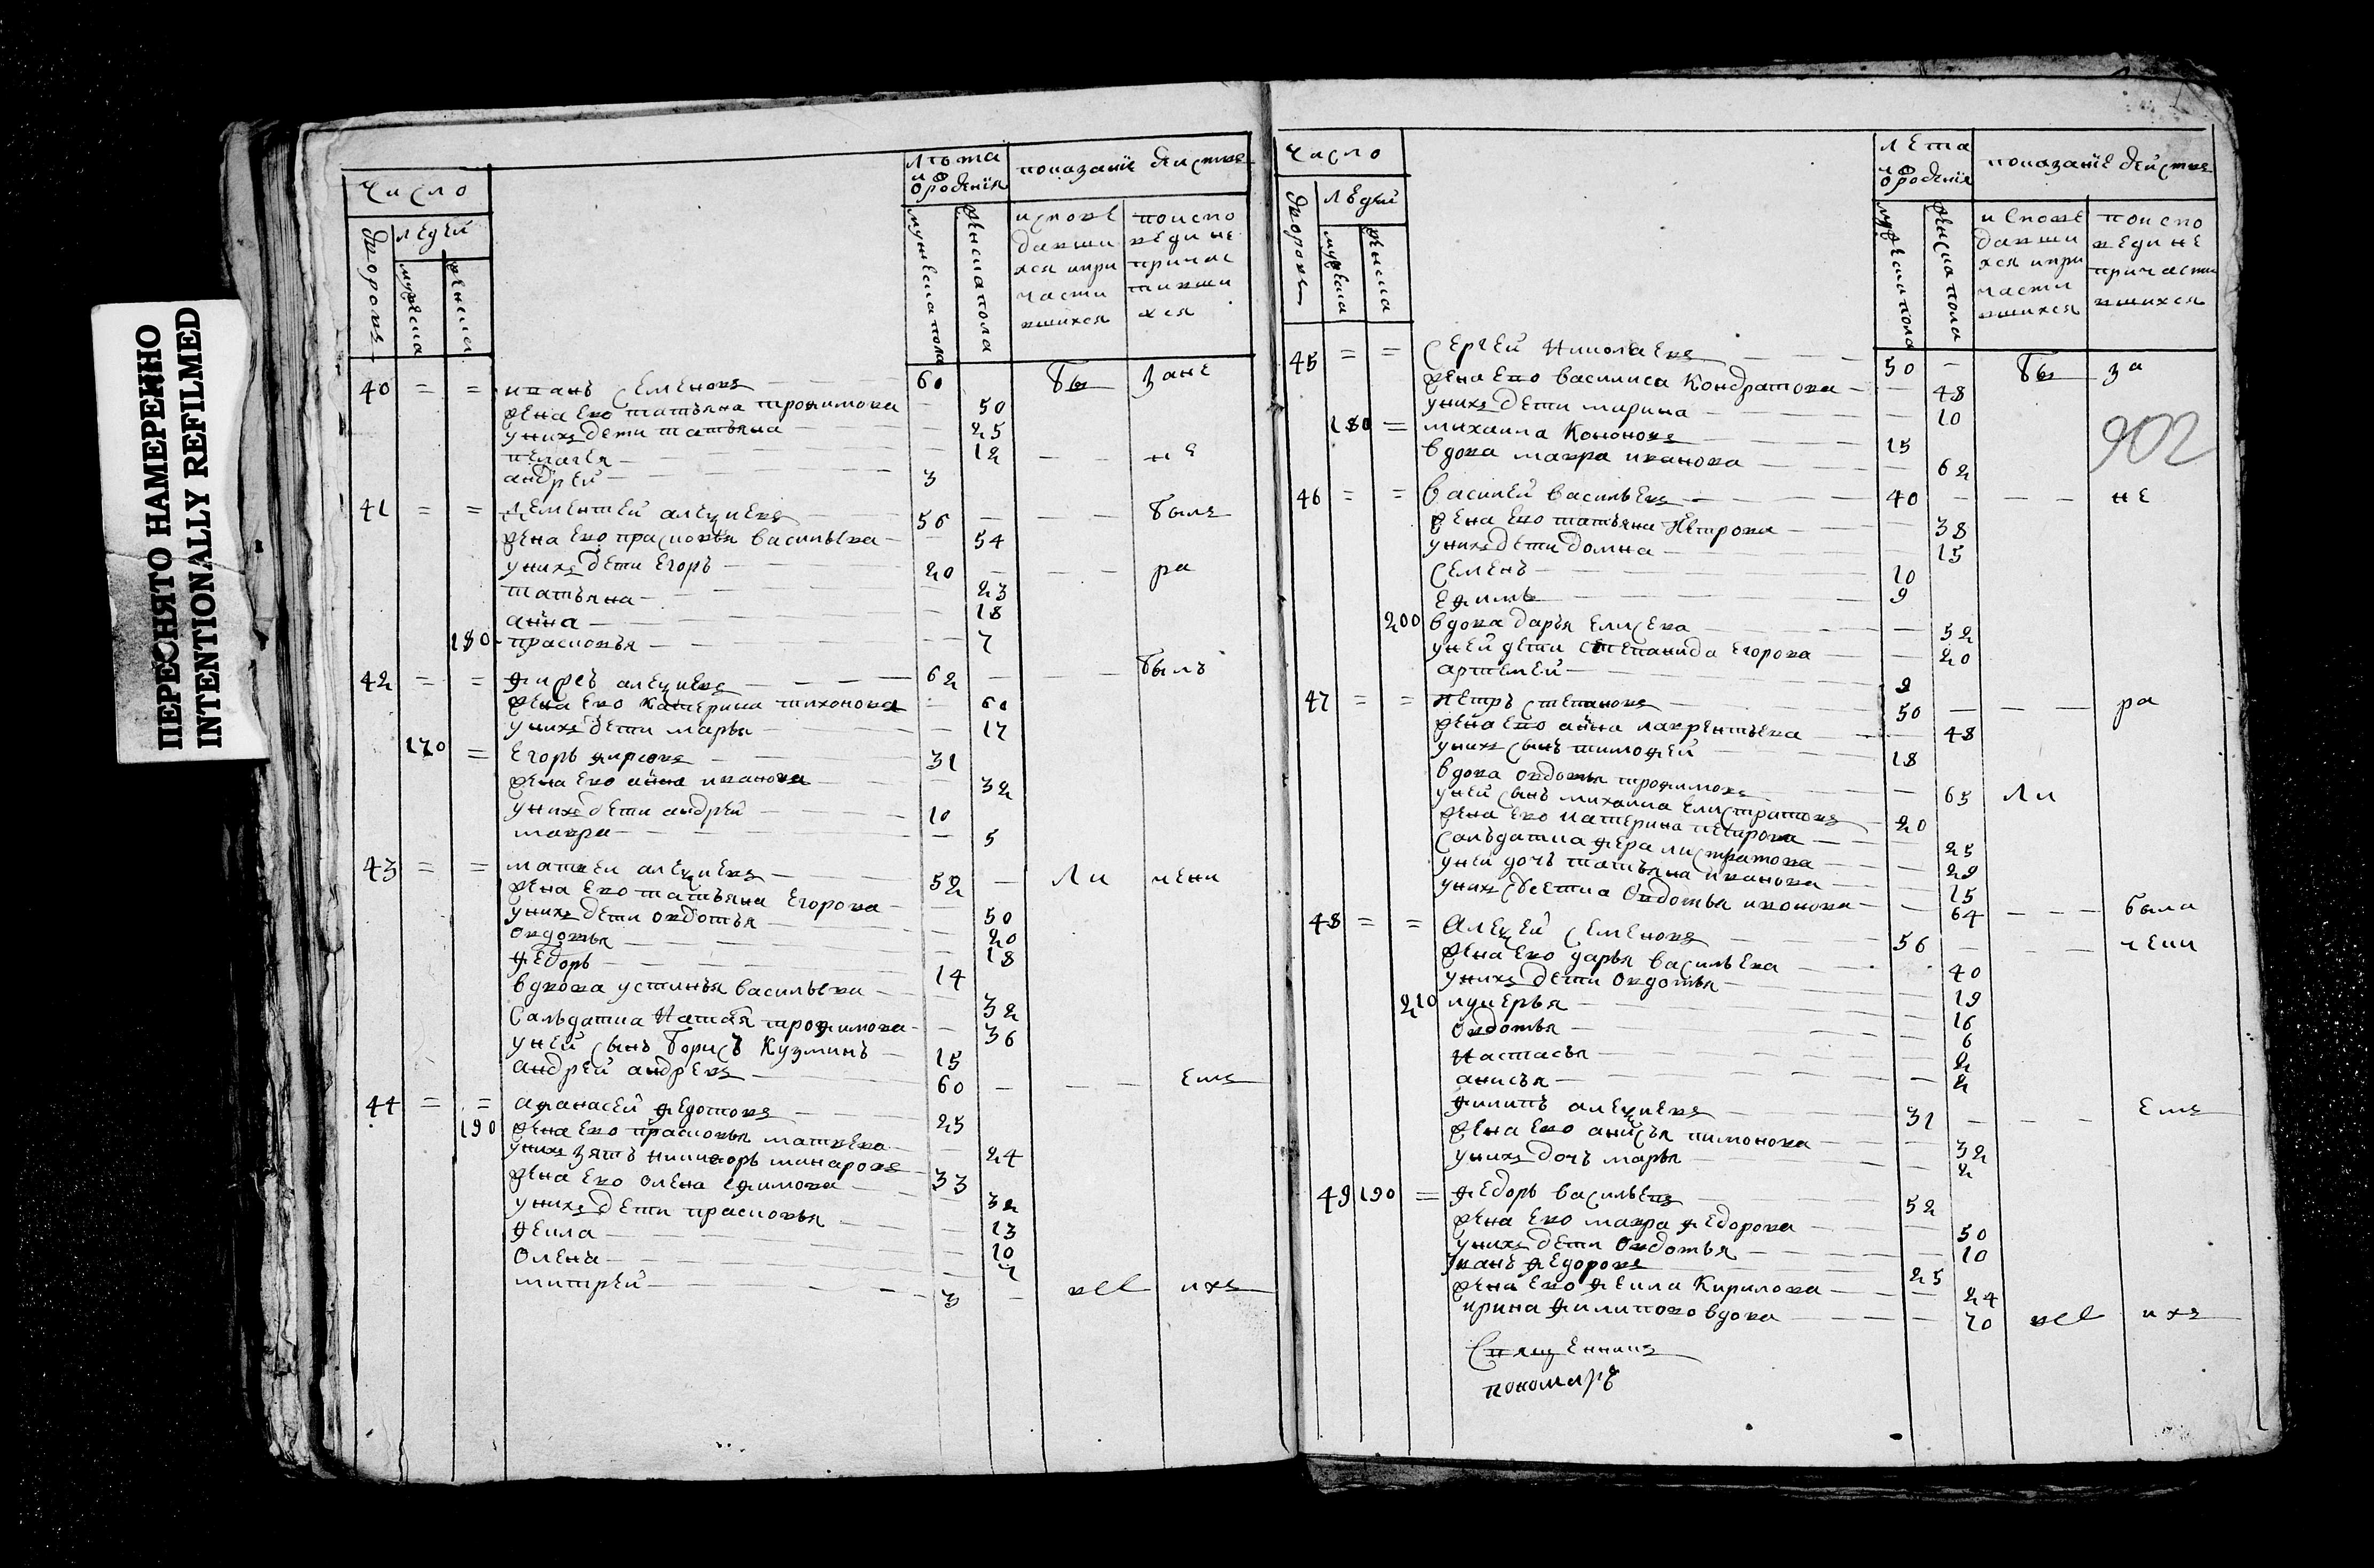 ПЕРЕСНЯТО НАМЕРЕННО
INTENTIONALLY REFILMED
число
лѣта ѿ рожденїя
показанїе действъ
дворовъ
людей
мужеска
женска
мужеска пола
женска пола
исповедавшихся и причастившихся
по исповеди не причастившихся
40 = = иванъ Семеновъ 60 бы зане
жена ево татьяна трофимова 50
у нихъ дети татьяна 25
пелагея 12 не
андрей 3
41 = = дементей алеѯеевъ 56 былъ
жена ево прасковья васильева 54
у нихъ дети Егоръ 20 ра
татьяна 23
анна 18
180 прасковья 7
42 = = фирсъ алеѯеевъ 62 былъ
жена ево катерина тихонова 60
у нихъ дети марья 17
170 = Егоръ фирсовъ 31
жена ево анна иванова 32
у нихъ дети андрей 10
мавра 5
43 = = матвеи алеѯеевъ 52 ли чени
жена ево татьяна Егорова 50
у нихъ дети овдотья 20
овдотья 18
федоръ 14
вдовова устинья васильева 32
Салъдатка трофимова 36
у ней сынъ Борисъ Кузминъ 15
андрей андреевъ 60 емъ
44 = = афанасей федотовъ 25
190 жена ево прасковья матвеева 24
у нихъ зять никифоръ макаровъ 33
жена ево олена ефимова 32
у нихъ дети прасковья 13
фекла 10
Олена 7
митрей 3 все ихъ
число
лета ѿ рожденїя
показанїе действъ
дворовъ
людей
мужеска
женска
мужеска пола
женска пола
исповедавшихся и причастившихся
по исповеди не причастившихся
45 = = Сергей николаевъ 50 бы за
жена ево василиса Кондратова 48
у нихъ дети марина 10
902
180 = михаила Кононовъ 15
вдова мавра иванова 62
46 = = василей васильевъ 40 не
жена ево татьяна петрова 38
у нихъ дети домна 15
семенъ 10
9
200 вдова дарья елисева 52
у ней дети степанида егорова 20
артемей 9
47 = = петръ степановъ 50 ра
жена ево анна лаврентьева 48
у нихъ сынъ тимофей 18
вдова овдотья трофимовъ 65 ли
у ней сынъ михаила елистратовъ 20
жена ево катерина петрова 25
Салъдатка листратова 29
у ней дочь татьяна иванова 15
у нихъ овдотья иконова 64 была
48 = = Алеѯей семеновъ 56 чени
жена ево дарья васильева 40
у нихъ дети овдотья 19
210 лукерья 16
овдотья 6
настасья 2
анисья 2
филипъ алеѯеевъ 31 емъ
жена ево анисья пимонова 32
у нихъ дочь марья 2
49 190 = федоръ васильевъ 52
жена ево мавра федорова 50
у нихъ дети овдотья 10
иванъ федоровъ 25
жена ево фекла Кирилова 24
ирина филипово вдова 70 все ихъ
Священникъ
пономарь